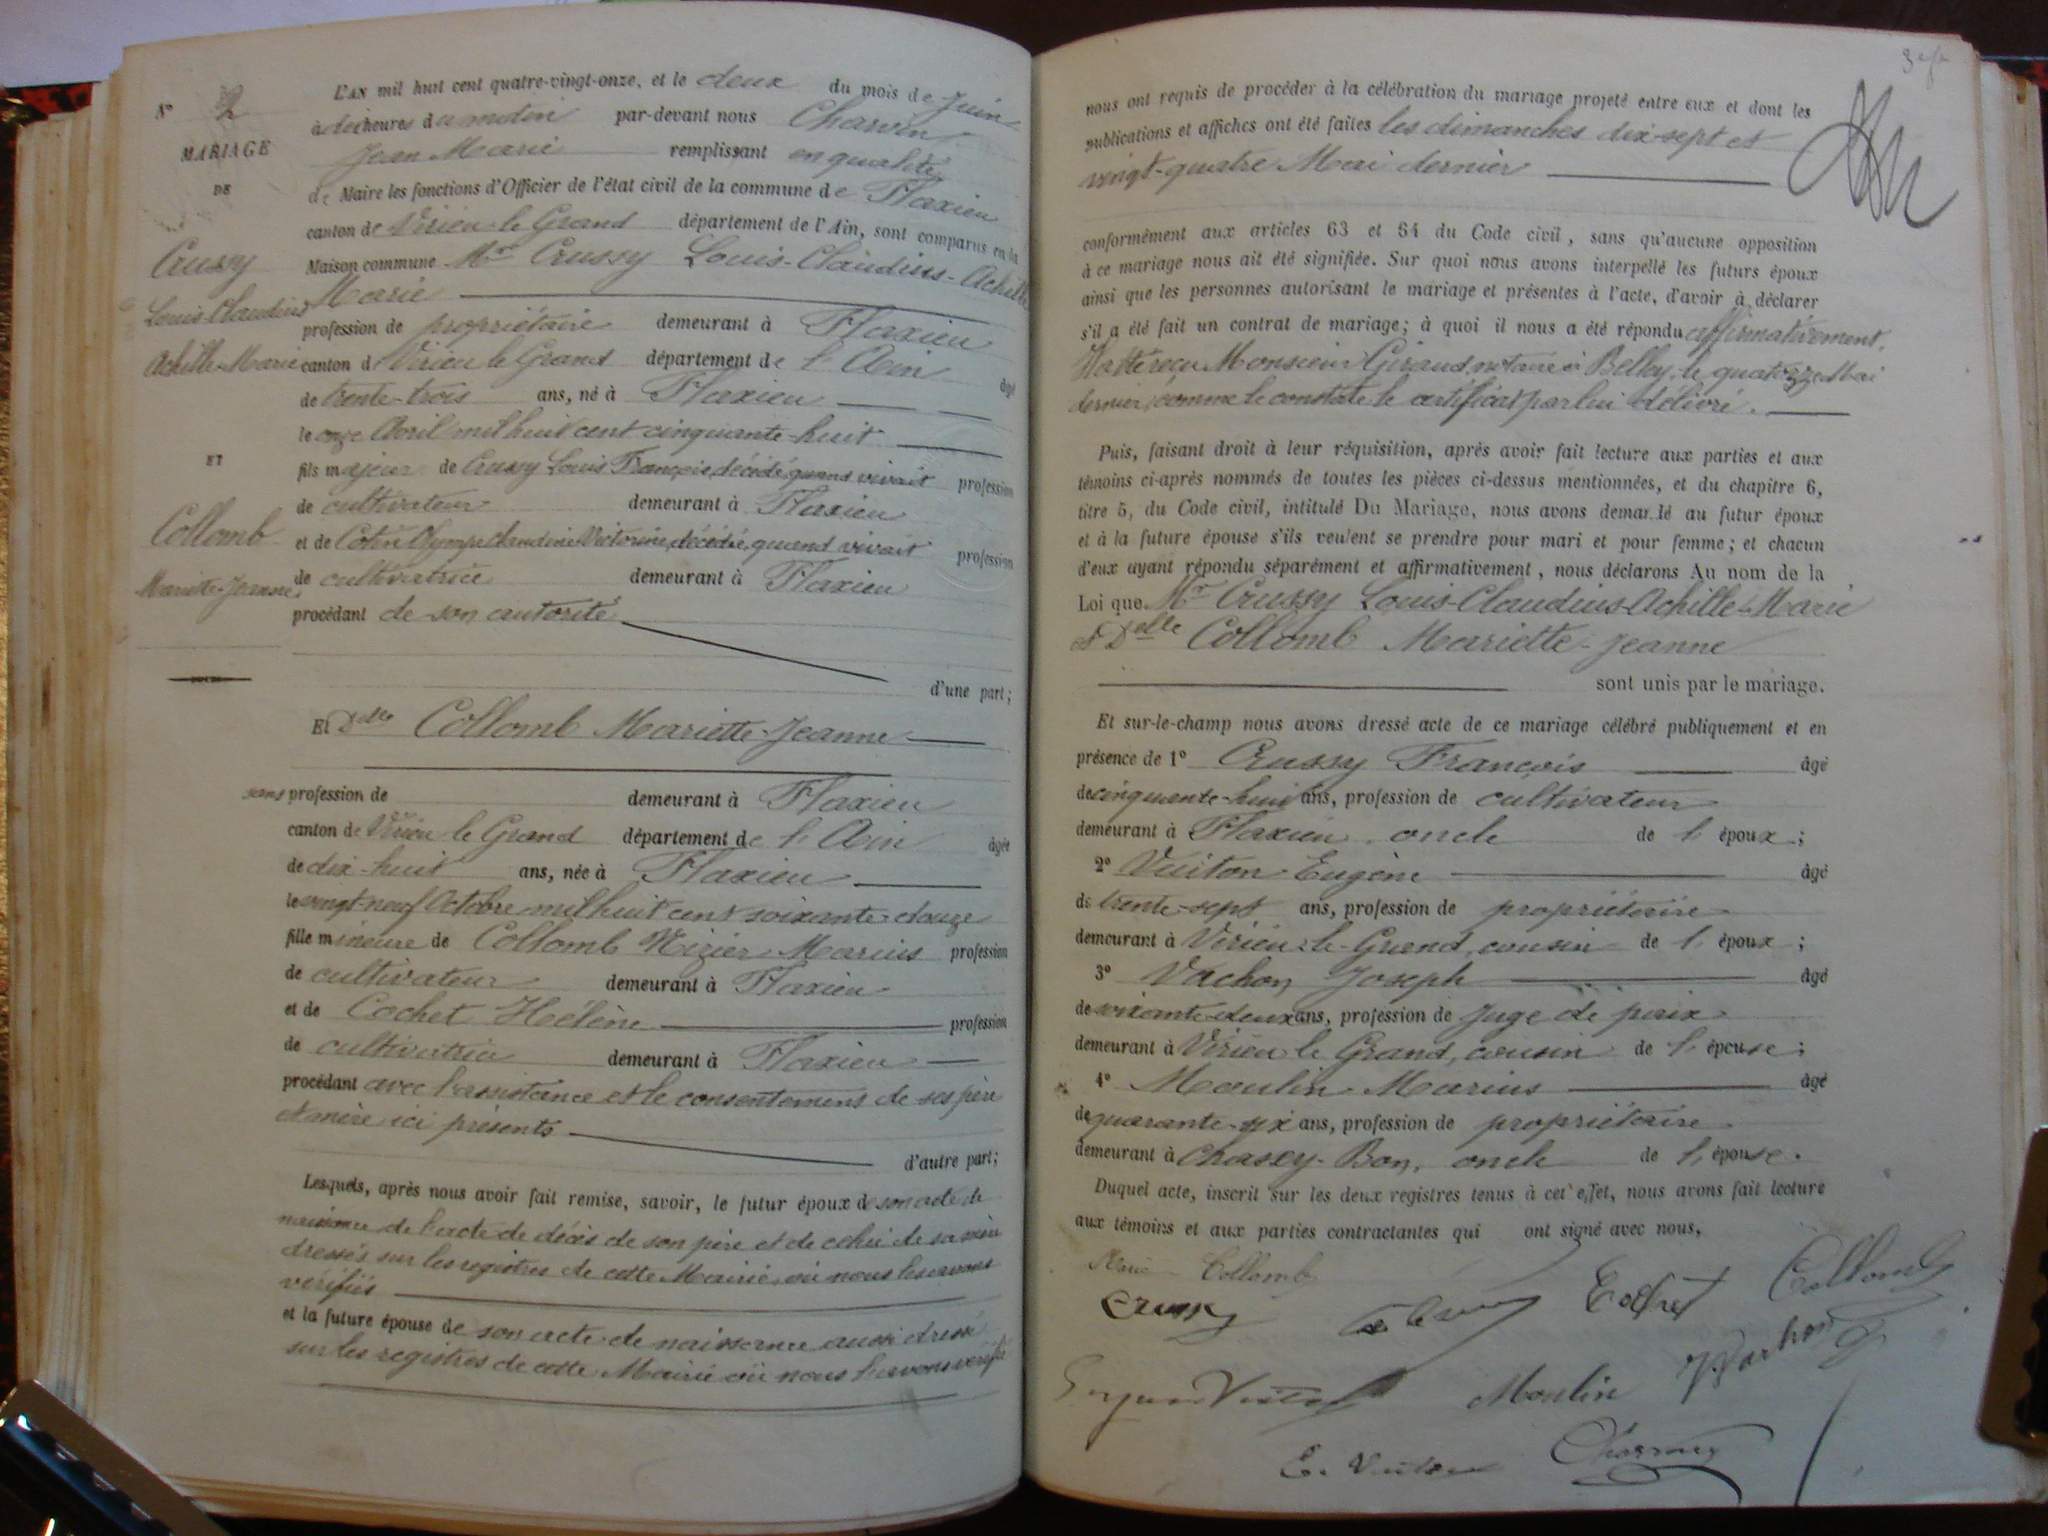 N° 2
MARIAGE
DE
Crussy
Louis-Claudius
Achille-Marie
ET
Collomb
Mariette-Jeanne
L'AN mil huit cent quatre-vingt-onze, et le deux du mois de Juin
à dix heures du matin par-devant nous Charvin
Jean Marie remplissant en qualité
de Maire les fonctions d'Officier de l'état civil de la commune de Flaxieu
canton de Virieu-le Grand département de l'Ain, sont comparus en la
Maison commune Mr Crussy Louis-Claudius-Achille
Marie
profession de propriétaire demeurant à Flaxieu
canton de Virieu le Grand département de l'Ain âgé
de trente-trois ans, né à Flaxieu
le onze Avril mil huit cent cinquante-huit
fils majeur de Crussy Louis François, décédé, quand vivait profession
de cultivateur demeurant à Flaxieu
et de Cotin Olympe Claudine Victorine, décédée, quand vivait profession
de cultivatrice demeurant à Flaxieu
procédant de son autorité
d'une part;
Et Delle Collomb Mariette-Jeanne
sans profession de demeurant à Flaxieu
canton de Virieu le Grand département de l'Ain âgée
de dix-huit ans, née à Flaxieu
le vingt-neuf Octobre mil huit cent soixante-douze
fille mineure de Collomb Nizier Marius profession
de cultivateur demeurant à Flaxieu
et de Cochet Hélène profession
de cultivatrice demeurant à Flaxieu
procédant avec l'assistance et le consentement de ses père
et mère ici présents
d'autre part;
Lesquels, après nous avoir fait remise, savoir, le futur époux de son acte de
naissance de l'acte de décès de son père et de celui de sa mère
dressés sur les registres de cette Mairie où nous les avons
vérifiés
et la future épouse de son acte de naissance aussi dressé
sur les registres de cette Mairie où nous l'avons vérifié
nous ont requis de procéder à la célébration du mariage projeté entre eux et dont les
publications et affiches ont été faites les dimanches dix-sept et
vingt-quatre Mai dernier
conformément aux articles 63 et 64 du Code civil, sans qu'aucune opposition
à ce mariage nous ait été signifiée. Sur quoi nous avons interpellé les futurs époux
ainsi que les personnes autorisant le mariage et présentes à l'acte, d'avoir à déclarer
s'il a été fait un contrat de mariage; à quoi il nous a été répondu affirmativement.
reçu Monsieur Giraud, notaire à Belley, le quatorze Mai
dernier, comme le constate le certificat par lui délivré.
Puis, faisant droit à leur réquisition, après avoir fait lecture aux parties et aux
témoins ci-après nommés de toutes les pièces ci-dessus mentionnées, et du chapitre 6,
titre 5, du Code civil, intitulé Du Mariage, nous avons demandé au futur époux
et à la future épouse s'ils veulent se prendre pour mari et pour femme; et chacun
d'eux ayant répondu séparément et affirmativement, nous déclarons Au nom de la
Loi que Mr Crussy Louis-Claudius-Achille-Marie
& Delle Collomb Mariette-Jeanne
sont unis par le mariage.
Et sur-le-champ nous avons dressé acte de ce mariage célébré publiquement et en
présence de 1° Crussy François âgé
de cinquante-huit ans, profession de cultivateur
demeurant à Flaxieu, oncle de l'époux;
2° Vuiton Eugène âgé
de trente-sept ans, profession de propriétaire
demeurant à Virieu-le-Grand, cousin de l'époux;
3° Vachon Joseph âgé
de soixante-deux ans, profession de Juge de paix
demeurant à Virieu le Grand, cousin de l'épouse;
4° Moulin Marius âgé
de quarante-six ans, profession de propriétaire
demeurant à Chazey-Bon, oncle de l'épouse.
Duquel acte, inscrit sur les deux registres tenus à cet effet, nous avons fait lecture
aux témoins et aux parties contractantes qui ont signé avec nous,
Collomb Collomb
Crussy Cochet
Moulin Vachon
E. Vuiton Charvin